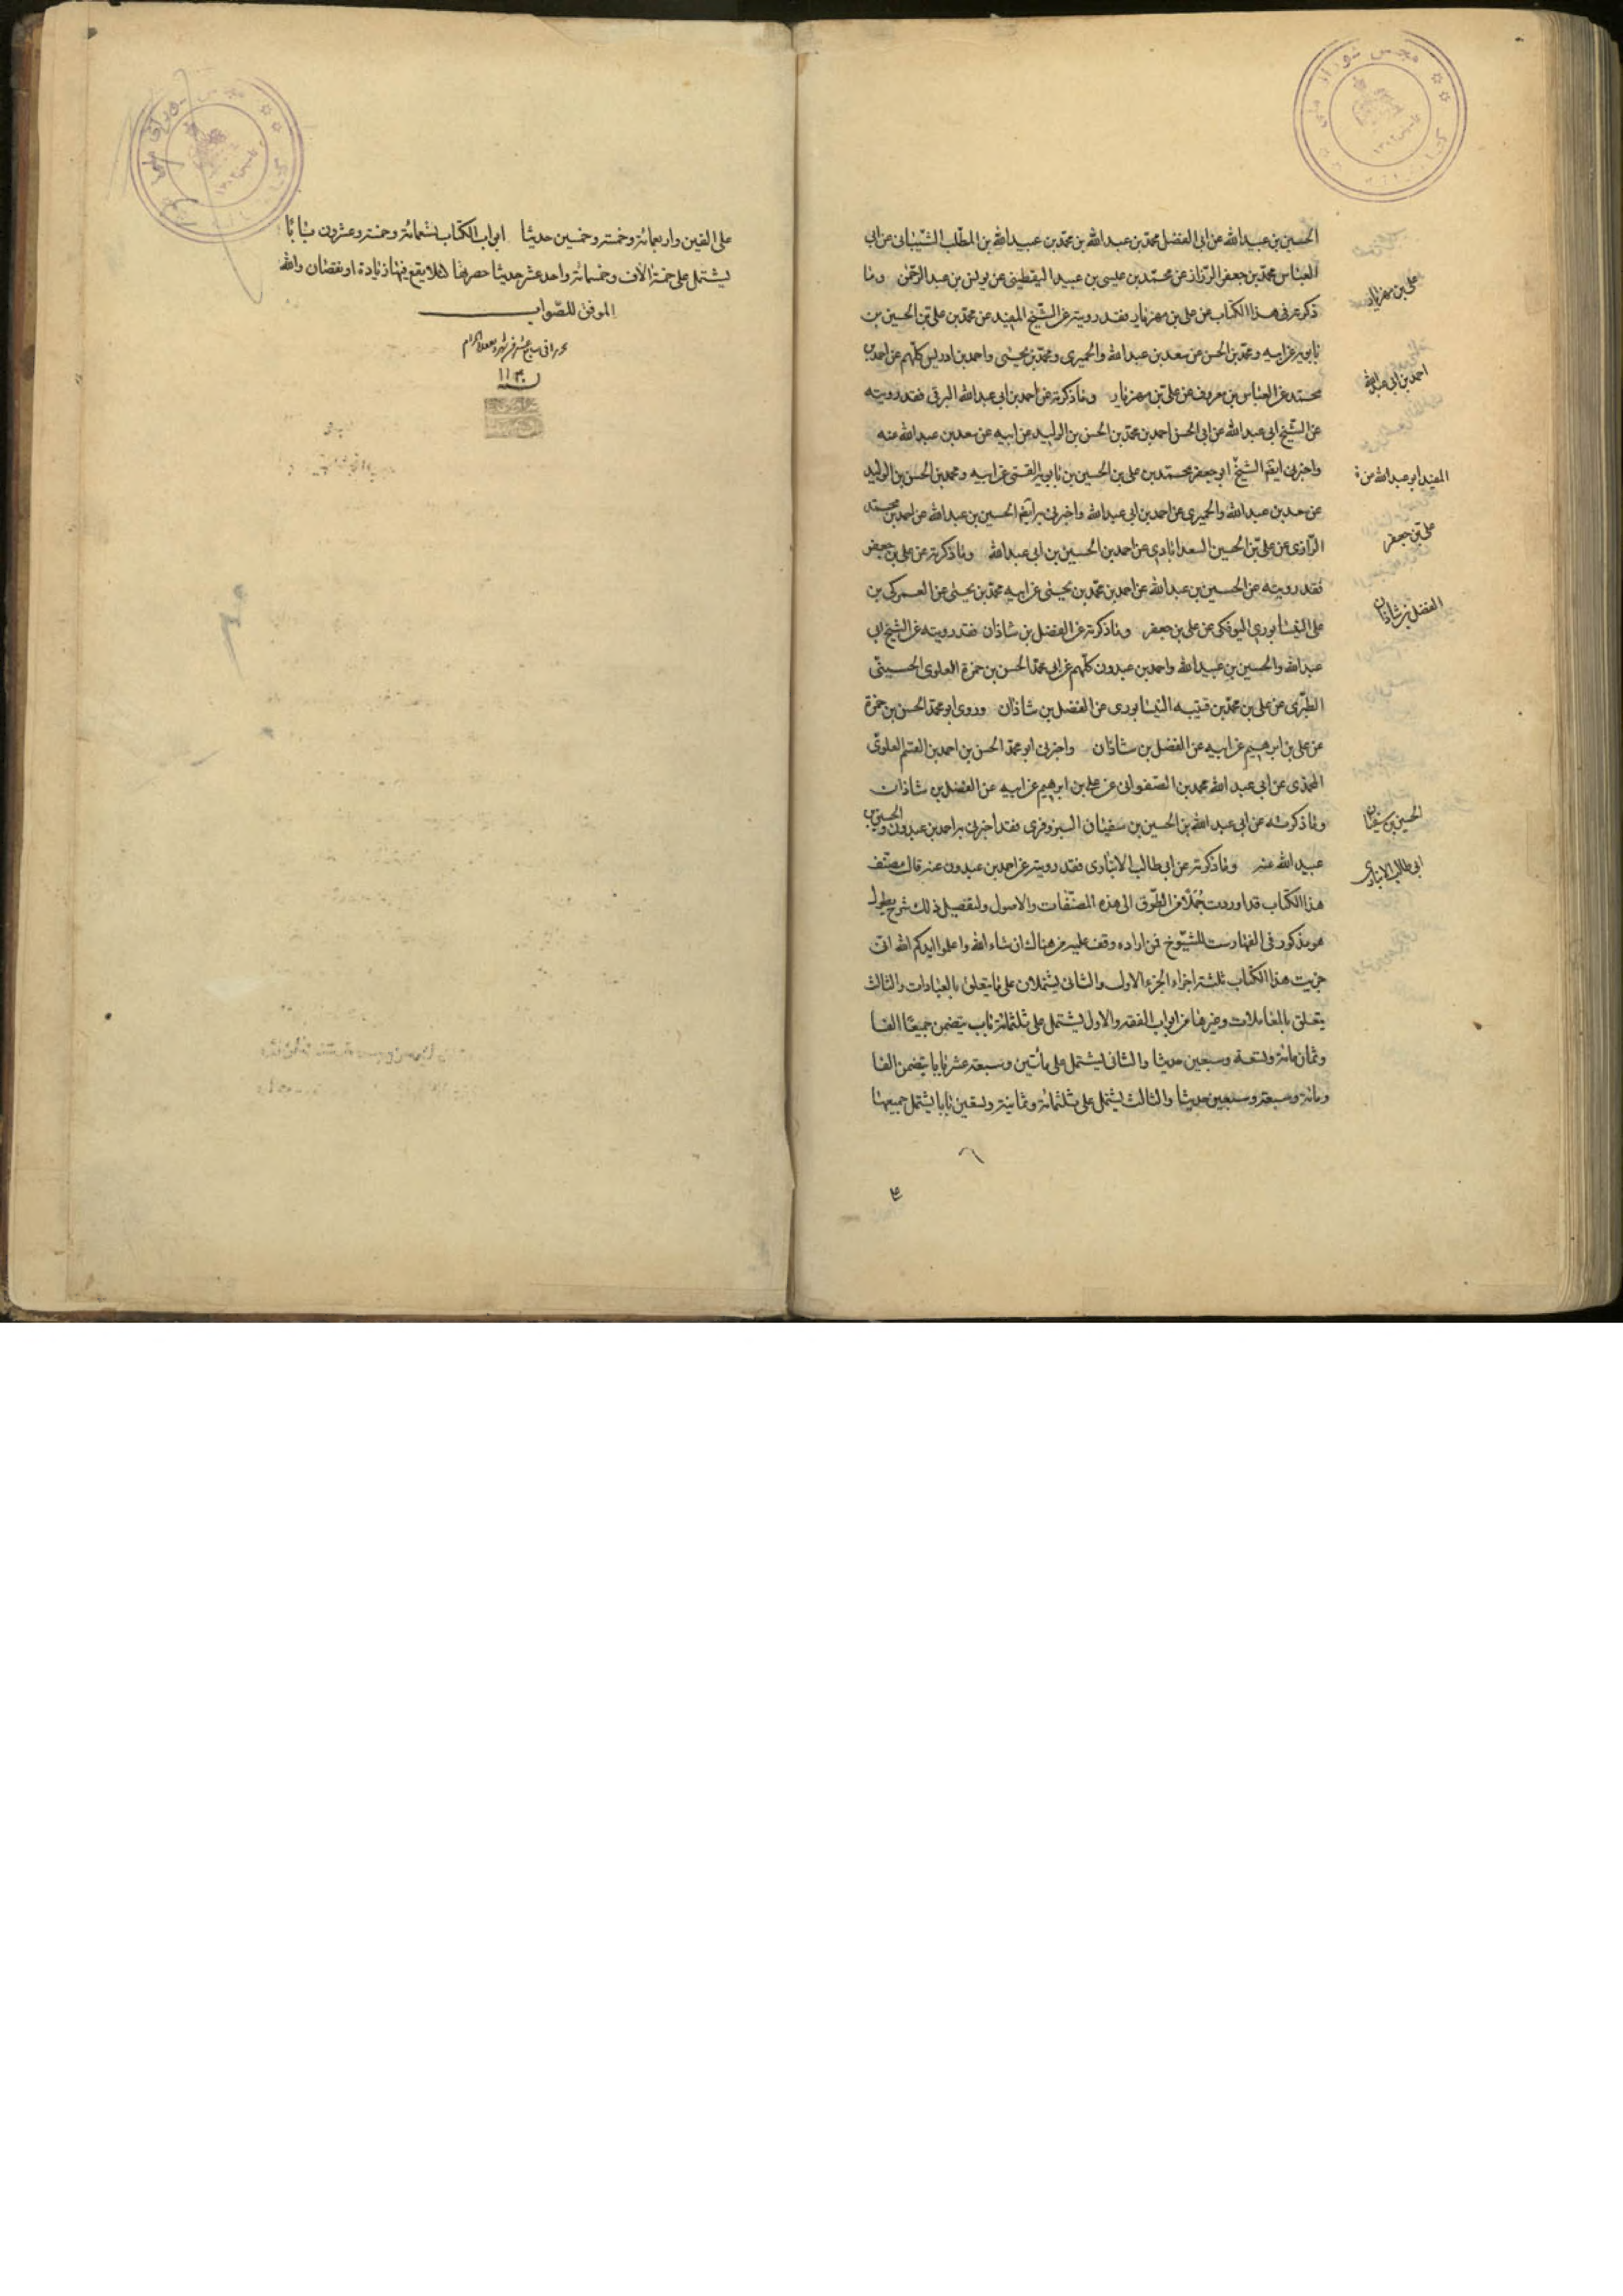 الحسين بن عبيد الله عن ابى المفضل محمد بن عبد الله بن محمد بن عبيد الله بن المطلب الشيبانى عن ابى
العباس محمد بن جعفر الرزاز عن محمد بن عيسى بن عبيد اليقطينى عن يونس بن عبد الرحمن وما
ذكرته فى هذا الكتاب عن على بن مهزيار فقد رويته عن الشيخ المفيد عن محمد بن على بن الحسين بن
بابويه عن ابيه ومحمد بن الحسن عن سعد بن عبد الله والحميرى ومحمد بن يحيى واحمد بن ادريس كلهم عن احمد بن
محمد عن العباس بن معروف عن على بن مهزيار وما ذكرته عن احمد بن ابى عبد الله البرقى فقد رويته
عن الشيخ ابى عبد الله عن ابى الحسن احمد بن محمد بن الحسن بن الوليد عن ابيه عن سعد بن عبد الله عنه
واخبرنى ايضا الشيخ ابى جعفر محمد بن على بن الحسين بن بابويه القمى عن ابيه ومحمد بن الحسن بن الوليد
عن سعد بن عبد الله والحميرى عن احمد بن ابى عبد الله واخبرنى به ايضا الحسين بن عبد الله عن احمد بن محمد
الرازى عن على بن الحسين السعدابادى عن احمد بن الحسين بن ابى عبد الله وما ذكرته عن على بن جعفر
فقد رويته عن الحسين بن عبد الله عن احمد بن محمد بن يحيى عن ابيه محمد بن يحيى عن العمركى بن
على النيشابورى البوفكى عن على بن جعفر وما ذكرته عن الفضل بن شاذان فقد رويته عن الشيخ ابى
عبد الله والحسين بن عبيد الله واحمد بن عبدون كلهم عن ابى محمد الحسن بن حمزة العلوى الحسينى
الطبرى عن على بن محمد بن قتيبه النيشابورى عن الفضل بن شاذان وروى ابو محمد الحسن بن حمزة
عن على بن ابرهيم عن ابيه عن الفضل بن شاذان واخبرنى ابو محمد الحسن بن احمد بن القسم العلوى
المحمدى عن ابى عبد الله محمد بن الصفوانى عن على بن ابرهيم عن ابيه عن الفضل بن شاذان
وما ذكرته عن ابى عبد الله بن الحسين بن سفيان البزوفرى فقد اخبرنى به احمد بن عبدون والحسين بن
عبيد الله عنه وما ذكرته عن ابى طالب الانبارى فقد رويته عن احمد بن عبدون عنه قال مصنف
هذا الكتاب قد اوردت جملا من الطرق الى هذه المصنفات والاصول ولتفصيل ذلك شرح يطول
هو مذكور فى الفهارست للشيوخ فمن اراده وقف عليه من هناك ان شاء الله واعلموا ايدكم الله انى
جزيت هذا الكتاب ثلثة اجزاء الجزء الاول والثانى يشتملان على ما يتعلق بالعبادات والثالث
يتعلق بالمعاملات وغيرها من ابواب الفقه والاول يشتمل على ثلثمائة باب يتضمن جميعا الفا
وثمان مائة وتسعة وتسعين حديثا والثانى يشتمل على مائتين وسبعة عشر بابا يتضمن الفا
ومائة وسبعة وسبعين حديثا والثالث يشتمل على ثلثمائة وثمانية وتسعين بابا يشتمل جميعها
على بن مهزيار
احمد بن ابى عبد الله
المفيد ابو عبد الله
على بن جعفر
الفضل بن شاذان
الحسين بن سفيان
ابى طالب الانبارى
على الفين واربعمائة وخمسة وخمسين حديثا ابواب الكتاب تسعمائة وخمسة وعشرون بابا
يشتمل على خمسة الاف وخمسمائة واحد عشر حديثا حصرتها لئلا يقع فيها زيادة او نقصان والله
الموفق للصواب
سنه ١١٣٠